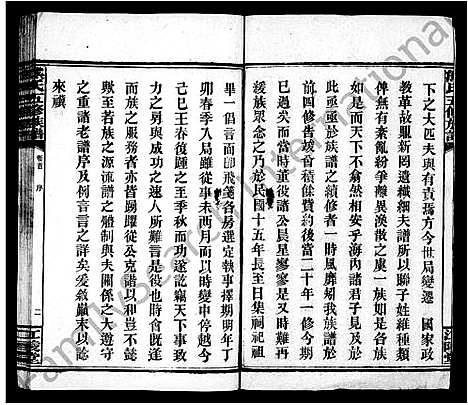 下之大匹夫與有責焉方今世局變遷 國家政
教革故鼎新罔遺纖細夫譜所以聯子姓維種類
俾無有紊亂紛爭離異渙散之虞一族如是各族
亦莫不如是將見普天悠然相安乎海內諸君子多以
此亟亟於族譜之續修者一時風靡矧我族譜於
前四修告竣曾積餘貲約後當二十年一修今期
奚啻及矣而當時董役諸公晨星寥寥是愈不可
緩族眾念之乃於民國十五年長至日集祠祀祖
畢一倡言而即飛箋各房選定執事擇期明年丁
卯春季入局雖未兩月而以時變中停越今
己巳王春復踵之至季秋而功遂訖竊天下事致
力之勇與成功之速人所難言是役也時會旣艱
而族之服務者亦皆踴躍從公克諧以和豈不重
歟至若族之源流譜之體制與夫關係之大遵守
之重諸老譜序及例言言之詳矣爰敘顚末以諗
來禩
五修族譜
卷首 序
二
江夏堂